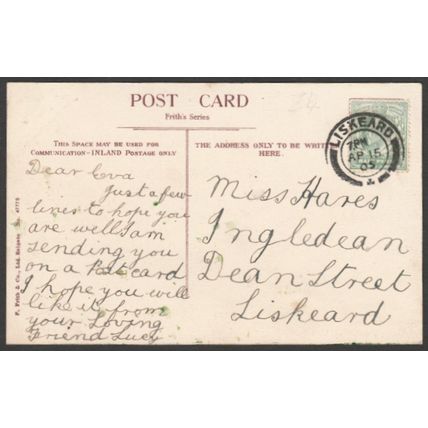 POST CARD
Frith's Series
THIS SPACE MAY BE USED FOR
COMMUNICATION-INLAND POSTAGE ONLY
THE ADDRESS ONLY TO BE WRITTEN
HERE.
Dear Eva
Just a few
lines to hope you
are well I am
sending you
on a Post card
I hope you will
like it from
your Loving
Friend Lucy
LISKEARD
7 PM
AP 15
05
Miss Hares
Ingledean
Dean Street
Liskeard
F. Frith & Co., Ltd. Reigate No. 4775